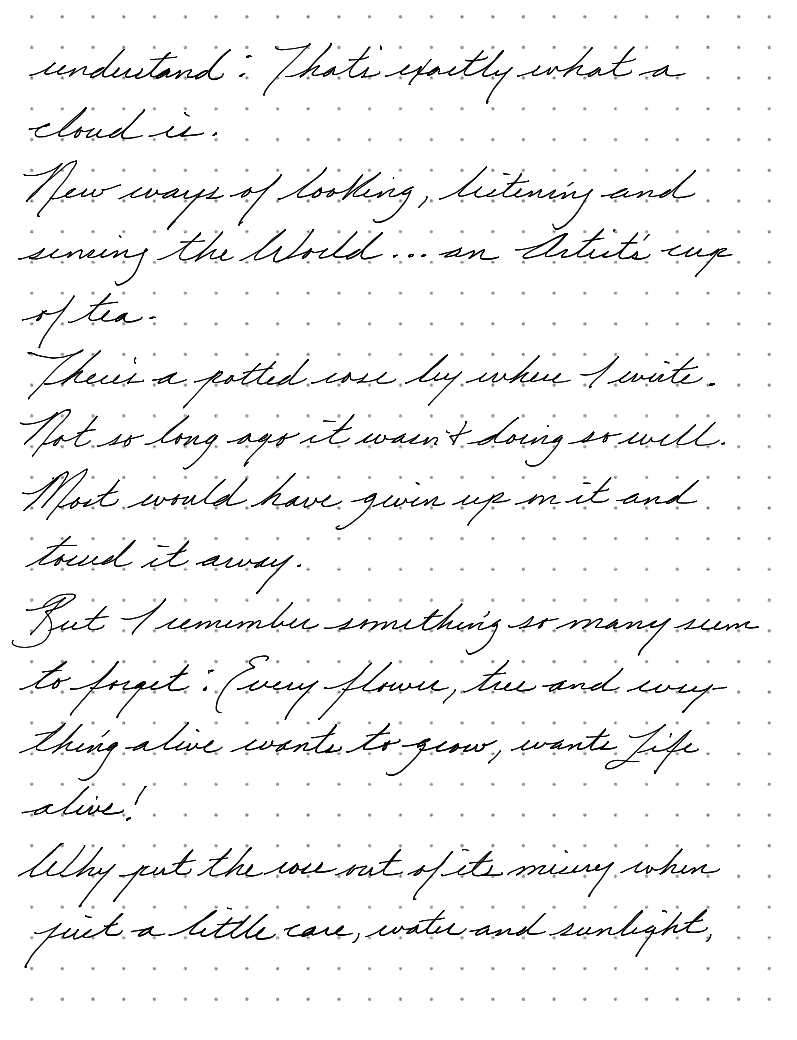 understand: That's exactly what a
cloud is.
New ways of looking, listening and
sensing the World... an Artist's cup
of tea.
There's a potted rose by where I write.
Not so long ago it wasn't doing so well.
Most would have given up on it and
tossed it away.
But I remember something so many seem
to forget: Every flower, tree and every-
thing alive wants to grow, wants Life
alive!
Why put the rose out of its misery when
just a little care, water and sunlight,